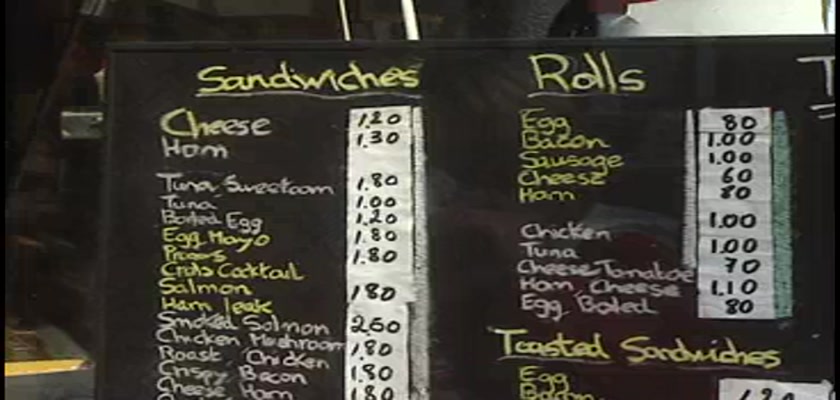 Sandwiches
Cheese 1.20
Ham 1.30
Tuna Sweetcorn 1.80
Tuna 1.00
Boiled Egg 1.20
Egg Mayo 1.80
Prawns 1.80
Crabs Cocktail
Salmon 180
Ham
Smoked Salmon 2.60
Chicken Mushroom
Roast Chicken 1.80
Crispy Bacon 1.80
Cheese Ham 1.80
Rolls
Egg 80
Bacon 1.00
Sausage 1.00
Cheese 60
Ham 80
Chicken 1.00
Tuna 1.00
Cheese Tomatoe 70
Ham Cheese 1.10
Egg Boiled 80
Toasted Sandwiches
Egg
Bacon 1.20
T